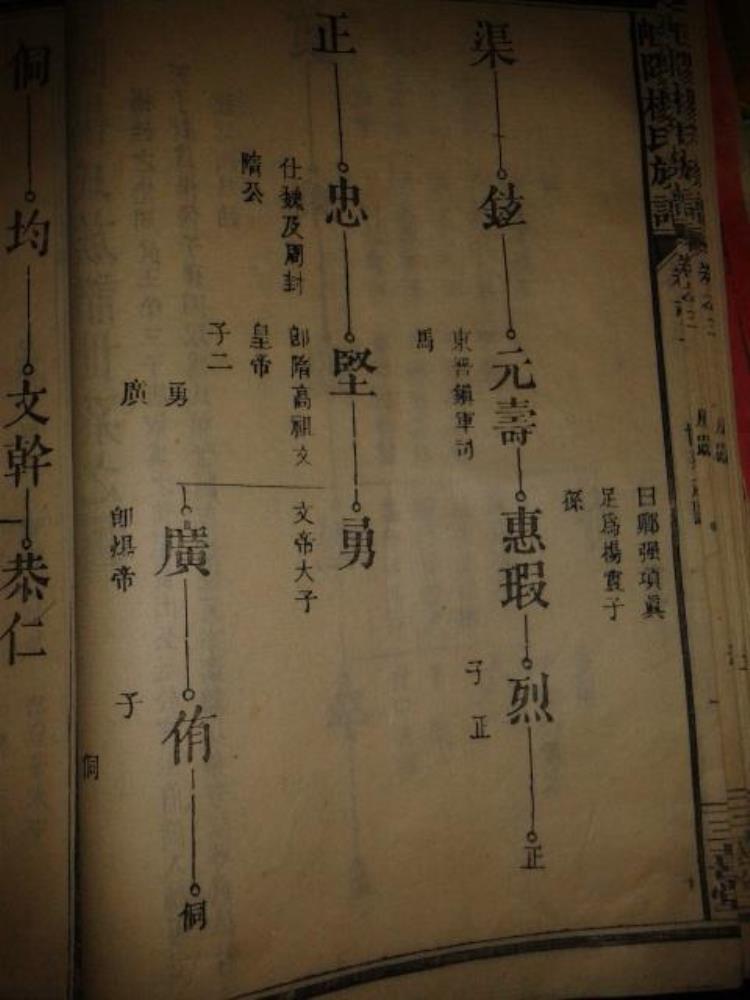 楊氏族譜
渠
鉉
元壽
東晉鎮軍司
馬
惠瑕
曰鄺强項眞
足爲楊震子
孫
烈
子正
正
正
忠
仕魏及周封
隋公
堅
即隋高祖文
皇帝
子二
勇
廣
勇
文帝大子
廣
即煬帝
子
侗
侑
侗
侗
均
文幹
恭仁